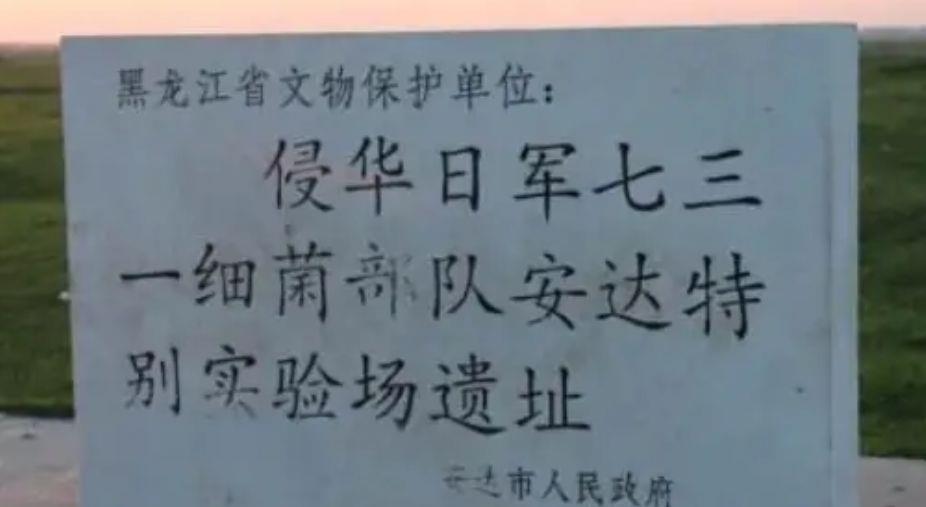 黑龙江省文物保护单位：
侵华日军七三
一细菌部队安达特
别实验场遗址
安达市人民政府